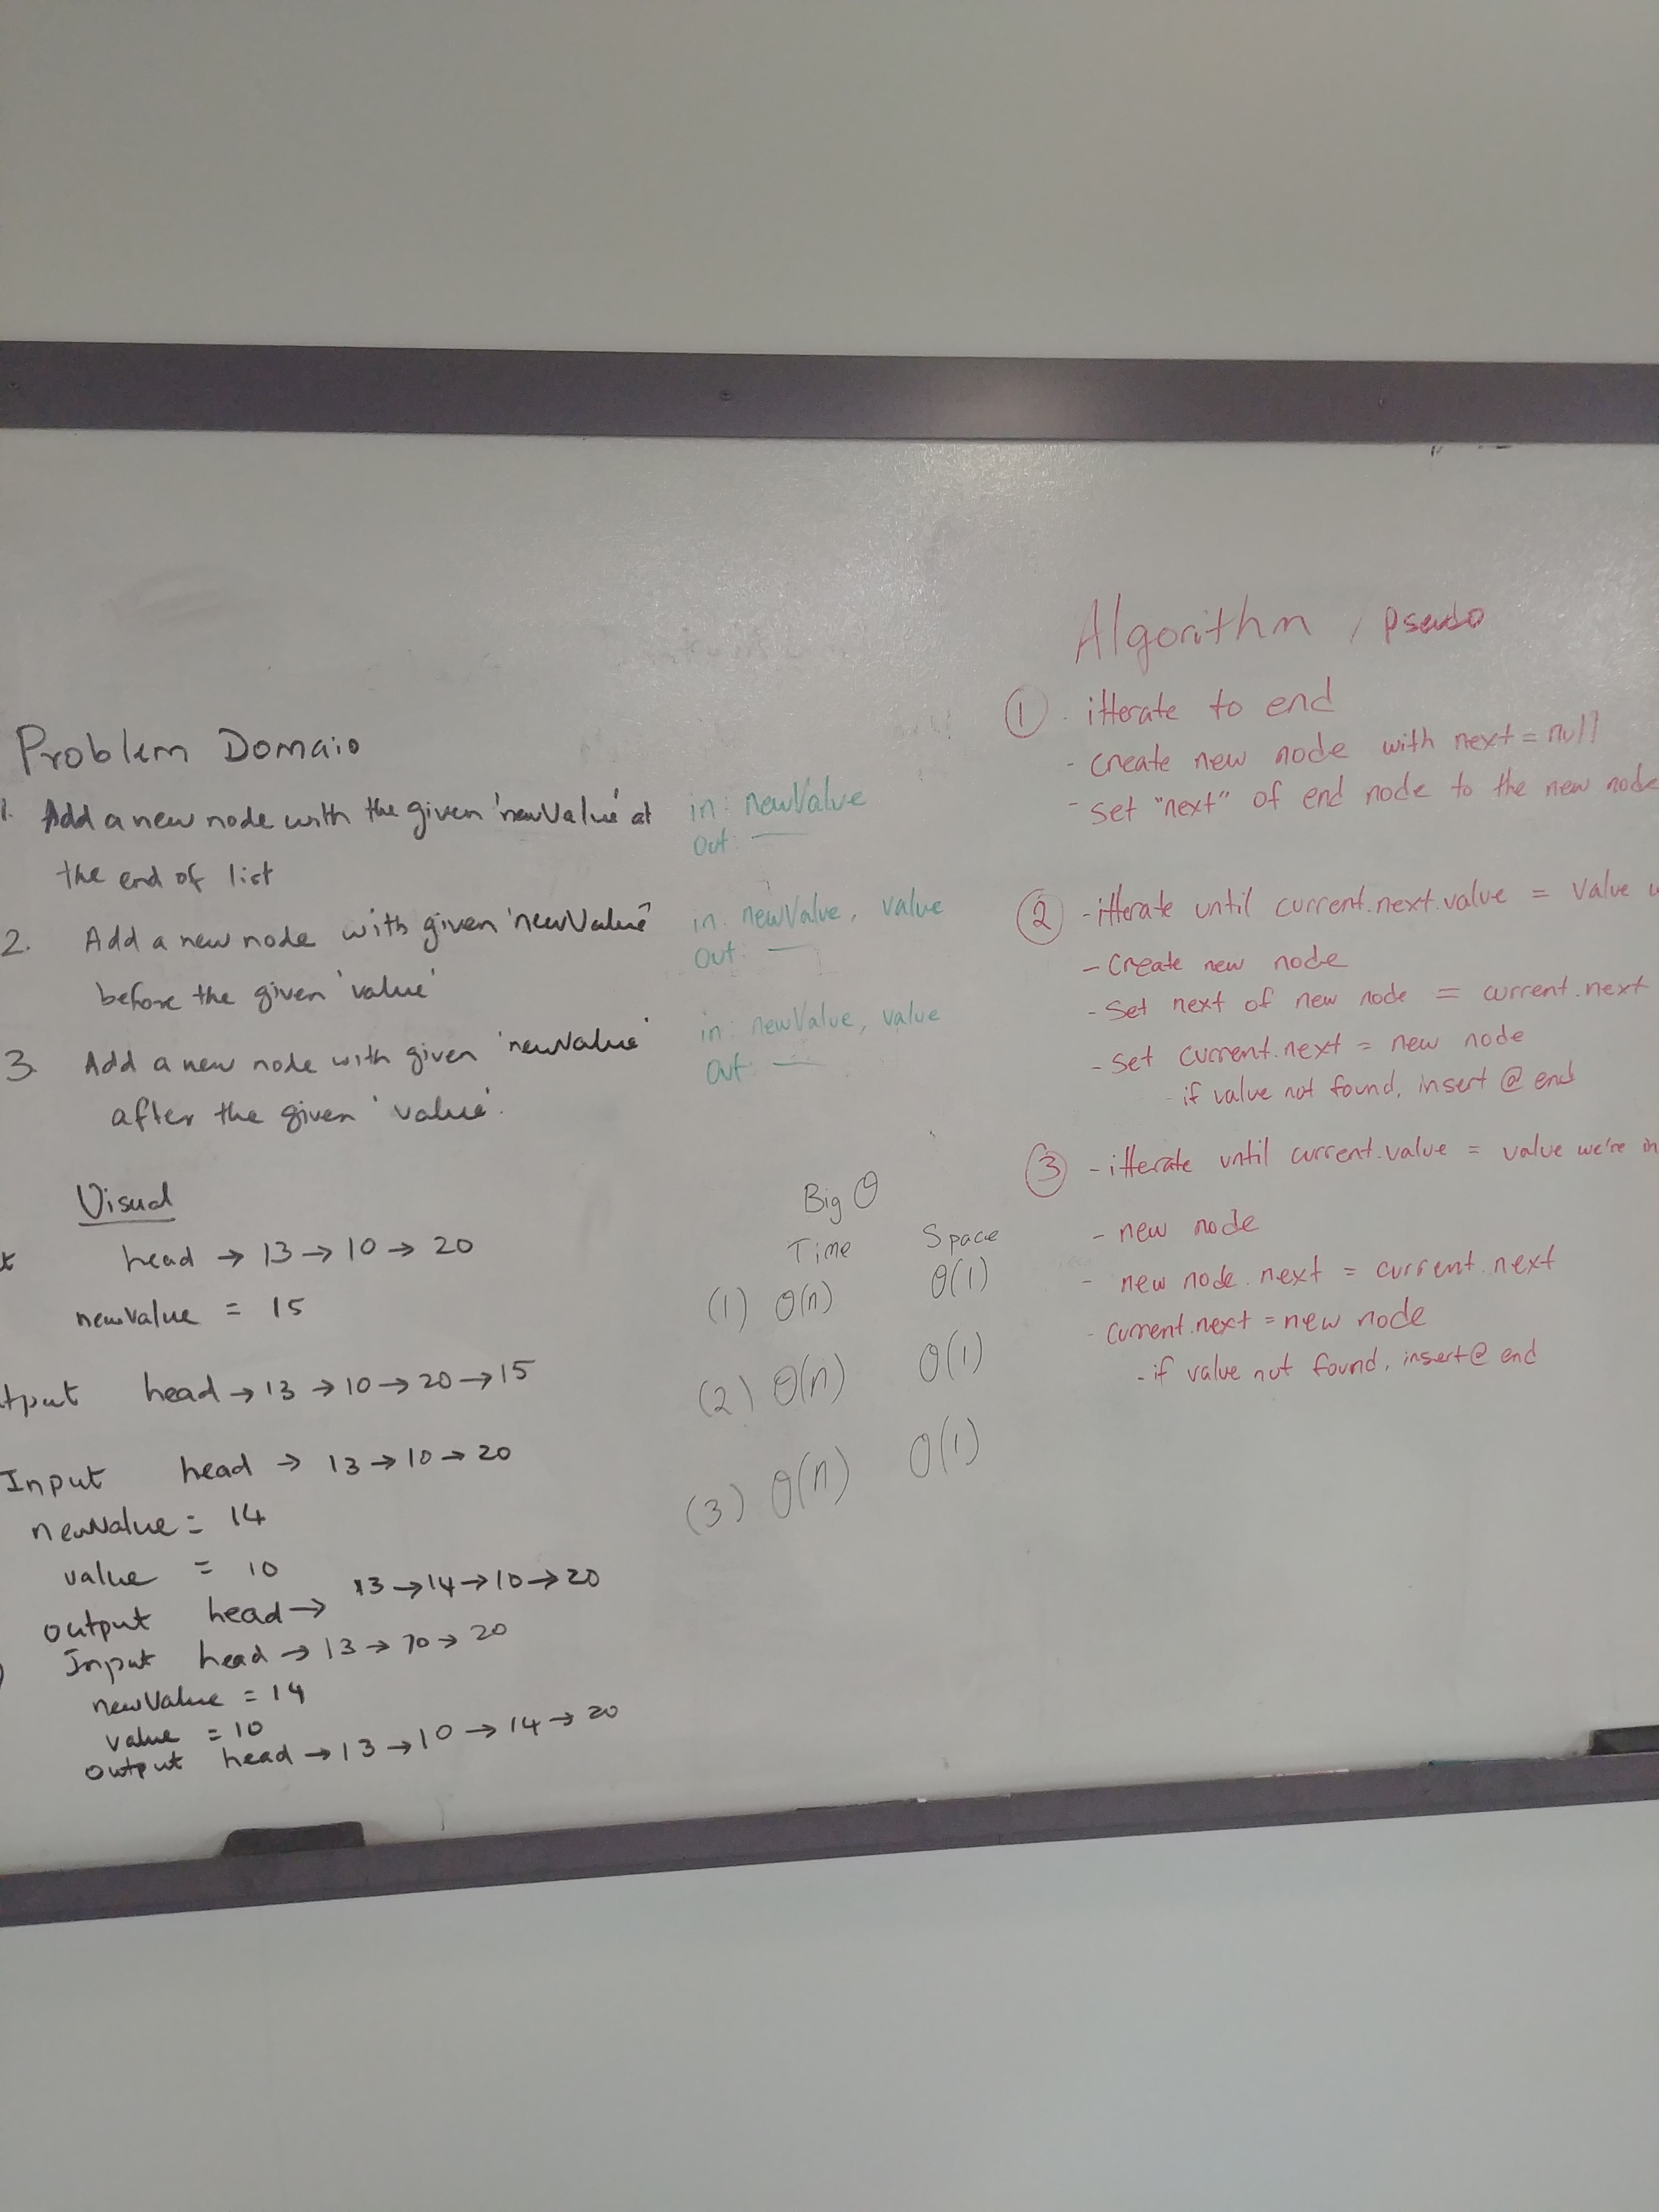 Problem Domain
1. Add a new node with the given 'newValue' at
the end of list
2. Add a new node with given 'newValue'
before the given 'value'
3. Add a new node with given 'newValue'
after the given 'value'.
in: newValue
Out: —
in: newValue, value
Out: —
in: newValue, value
Out: —
Visual
head → 13 → 10 → 20
newValue = 15
head → 13 → 10 → 20 → 15
Input head → 13 → 10 → 20
newValue = 14
value = 10
output head → 13 → 14 → 10 → 20
Input head → 13 → 10 → 20
newValue = 14
value = 10
output head → 13 → 10 → 14 → 20
Big O
Time Space
(1) O(n) O(1)
(2) O(n) O(1)
(3) O(n) O(1)
Algorithm / pseudo
1 - itterate to end
- create new node with next = null
- set "next" of end node to the new node
2 - itterate until current.next.value = value
- Create new node
- Set next of new node = current.next
- Set current.next = new node
- if value not found, insert @ end
3 - itterate until current.value = value we're
- new node
- new node.next = current.next
- current.next = new node
- if value not found, insert @ end